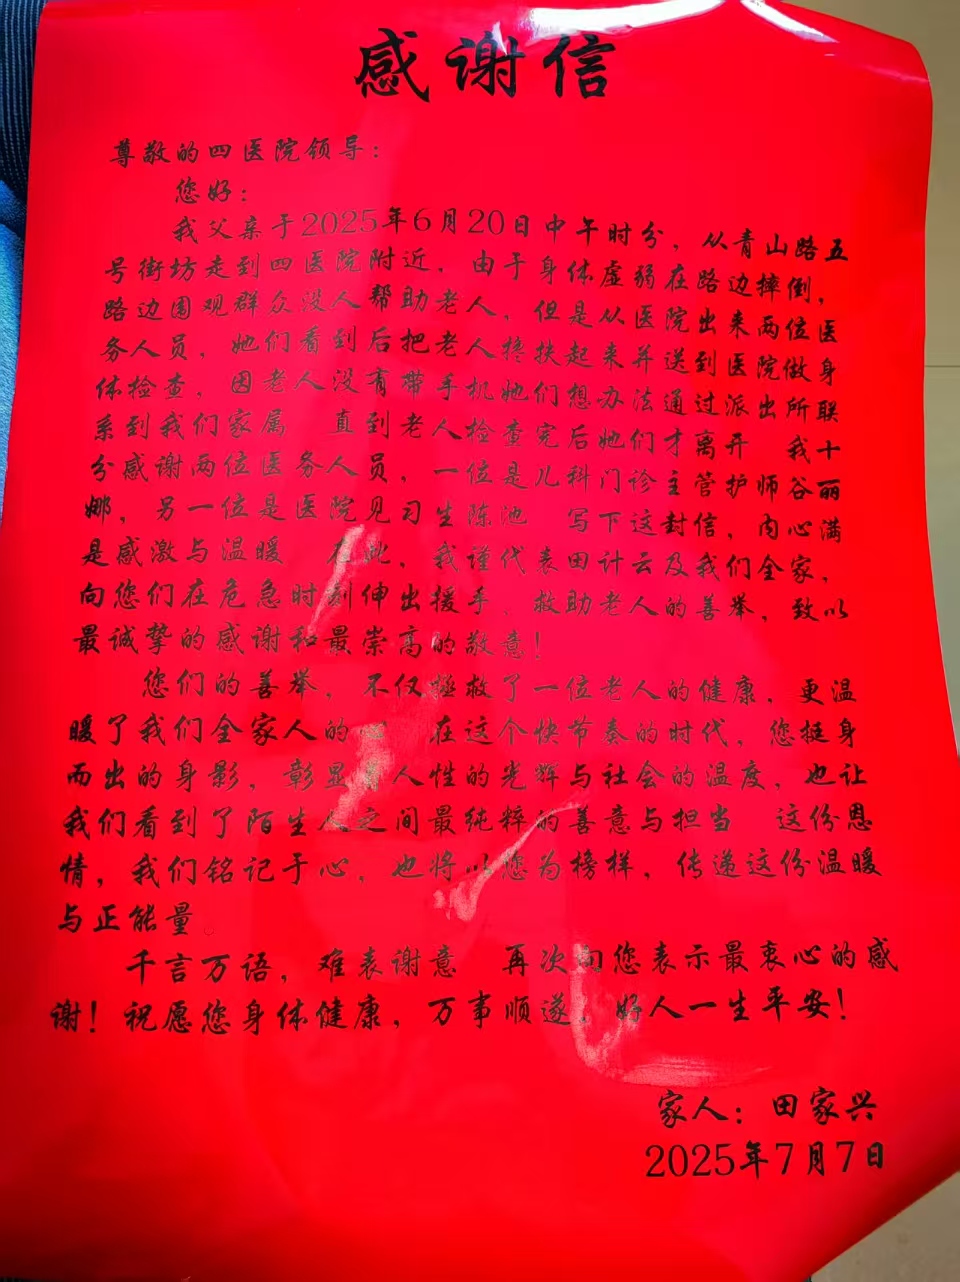 感谢信
尊敬的四医院领导：
您好：
我父亲于2025年6月20日中午时分，从青山路五
号街坊走到四医院附近，由于身体虚弱在路边摔倒，
路边围观群众没人帮助老人，但是从医院出来两位医
务人员，她们看到后把老人搀扶起来并送到医院做身
体检查，因老人没有带手机她们想办法通过派出所联
系到我们家属 直到老人检查完后她们才离开 我十
分感谢两位医务人员，一位是儿科门诊主管护师谷丽
娜，另一位是医院见习生陈池 写下这封信，内心满
是感激与温暖 在此，我谨代表田计云及我们全家，
向您们在危急时刻伸出援手、救助老人的善举，致以
最诚挚的感谢和最崇高的敬意！
您们的善举，不仅拯救了一位老人的健康，更温
暖了我们全家人的心 在这个快节奏的时代，您挺身
而出的身影，彰显了人性的光辉与社会的温度，也让
我们看到了陌生人之间最纯粹的善意与担当 这份恩
情，我们铭记于心，也将以您为榜样，传递这份温暖
与正能量。
千言万语，难表谢意 再次向您表示最衷心的感
谢！祝愿您身体健康，万事顺遂，好人一生平安！
家人：田家兴
2025年7月7日